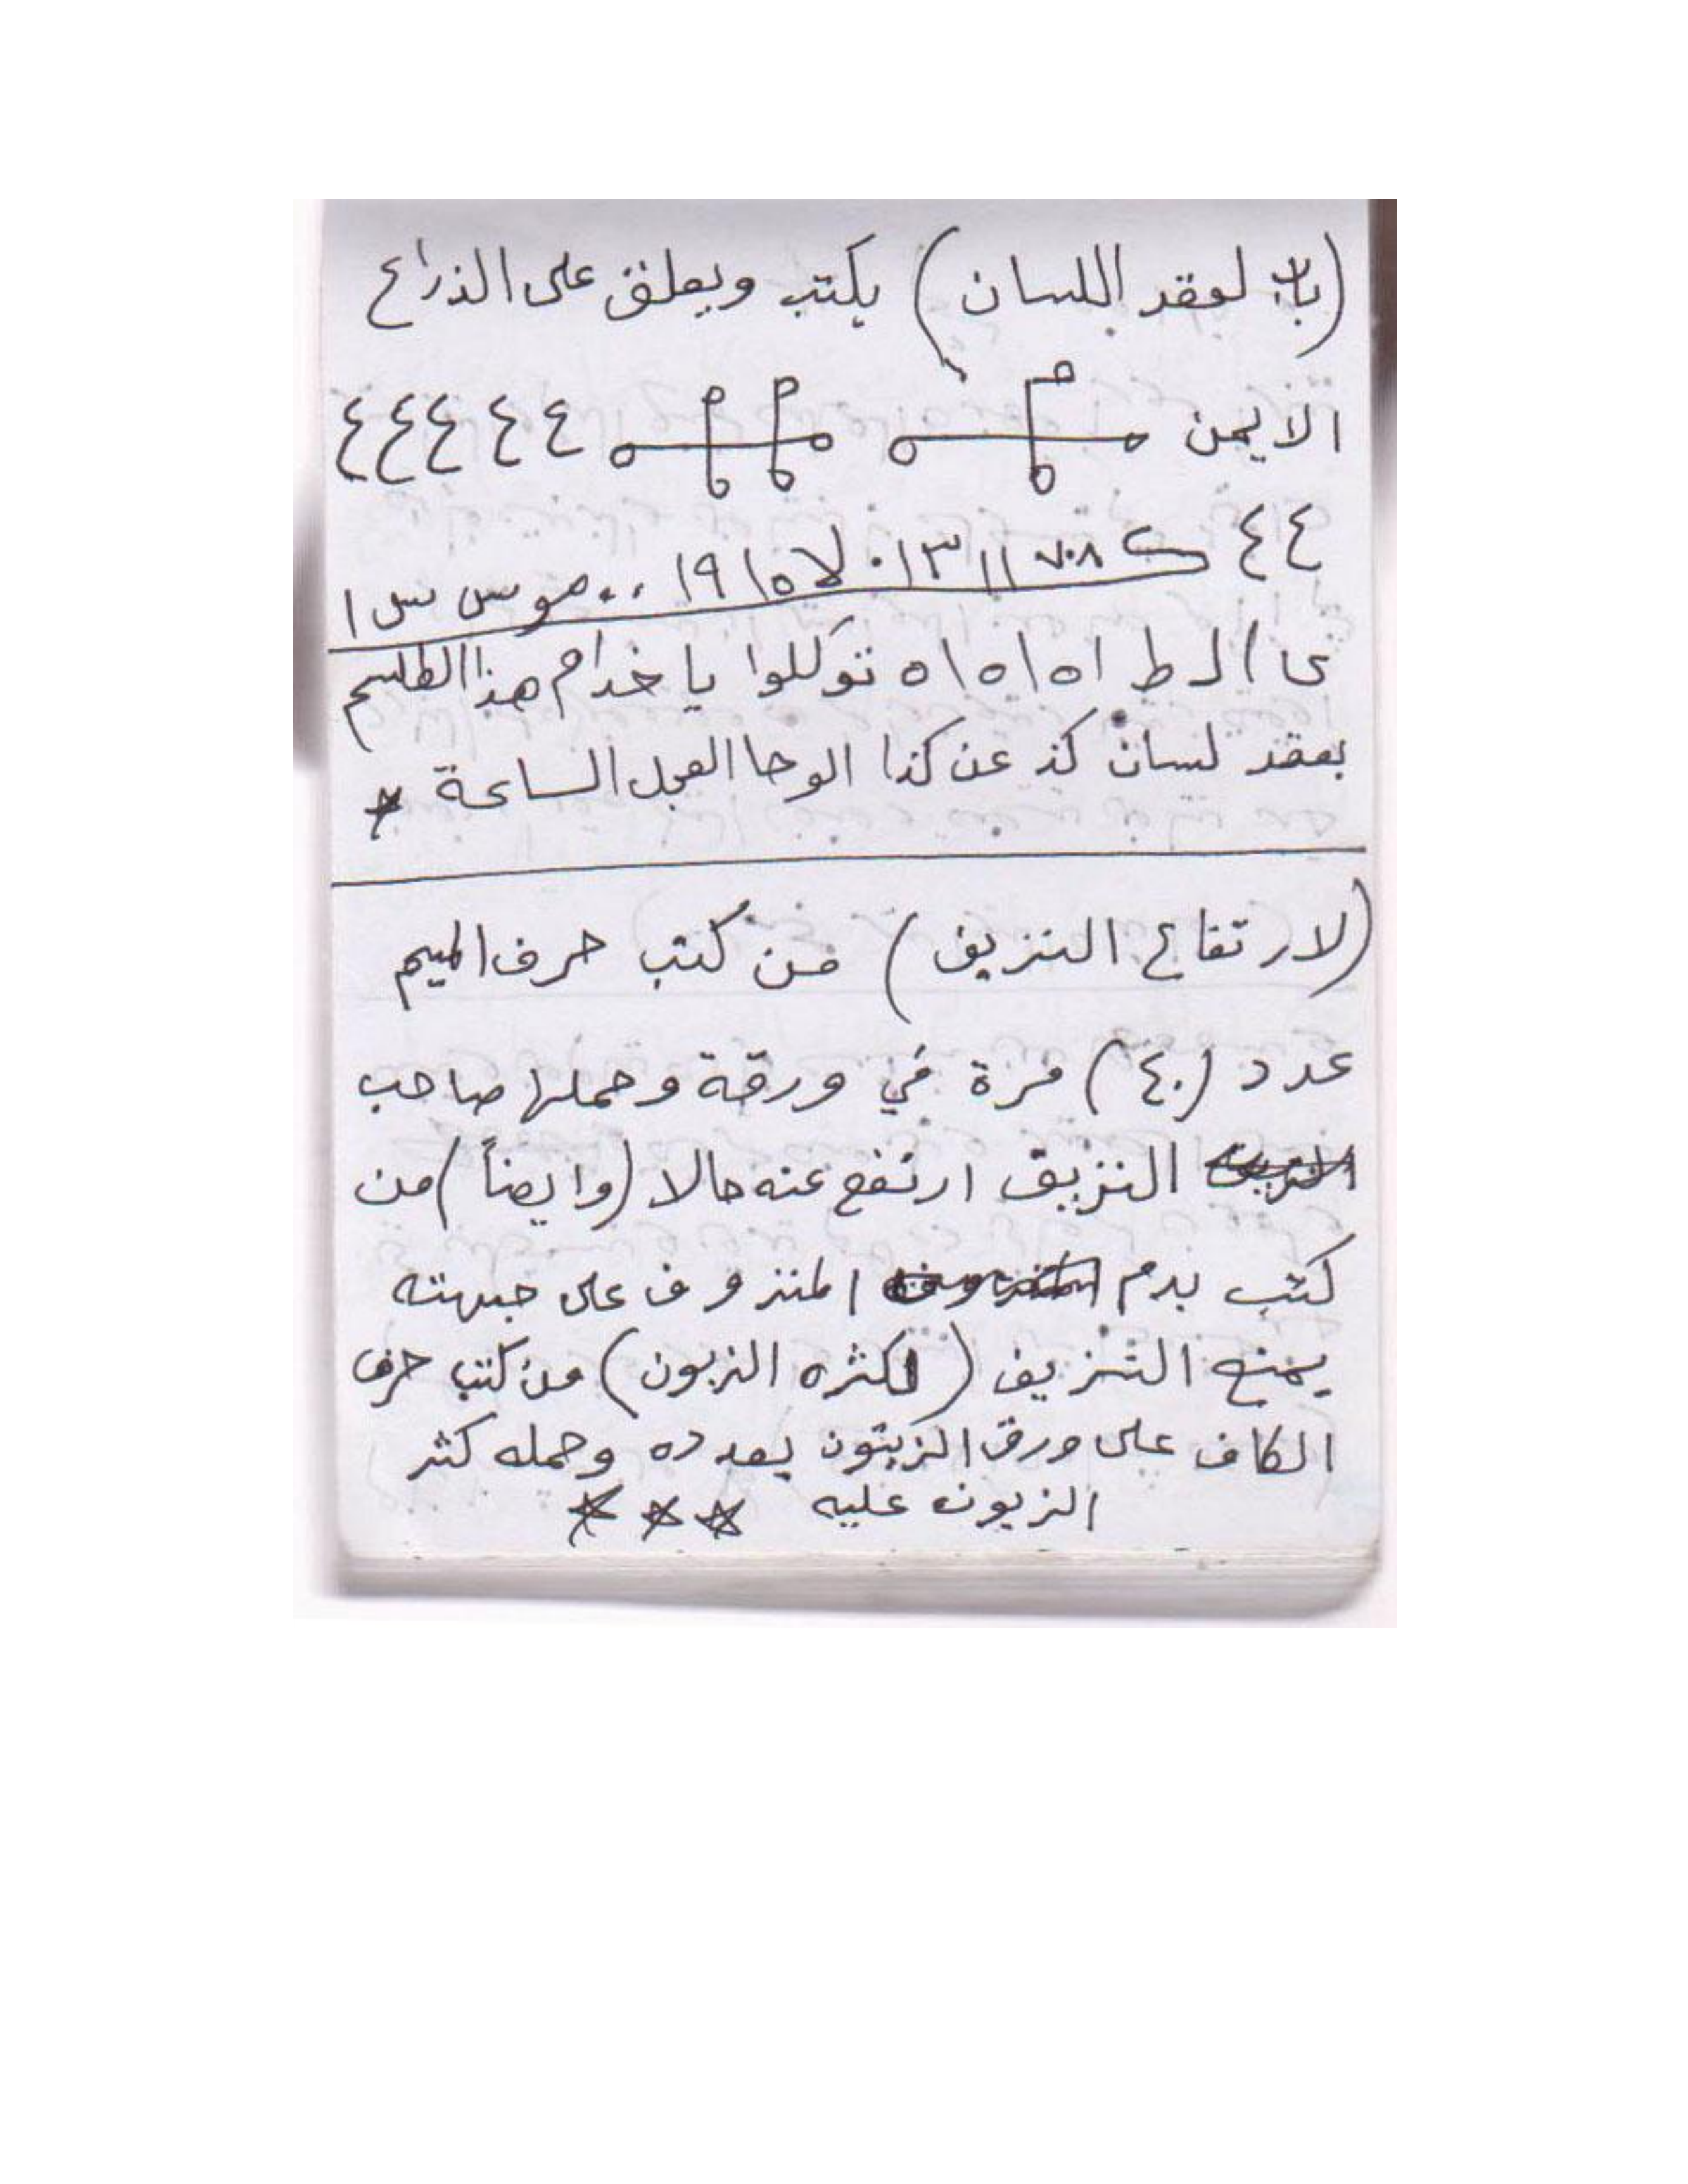 (باب لعقد اللسان) يكتب ويعلق على الذراع
الايمن ٤ ٤ ٤ ٤ ٤
٤ ٤ ١١ ١٣ ٠ لا ١٥ ١٩ ٠٠ موس س ا
ى ا ا ط اه ا ه ا ه توكلوا يا خدام هذا الطلسم
بعقد لسان كذ عن كذا الوحا العجل الساعة
(لارتفاع النزيف) من كتب حرف الميم
عدد (٤٠) مرة في ورقة وحملها صاحب
النزيق ارتفع عنه حالا (وايضاً) من
كتب بدم المنزوف على جبهته
يمنع النزيف (لكثره الزبون) من كتب حرف
الكاف على ورق الزيتون بعدده وحمله كثر
الزبون عليه